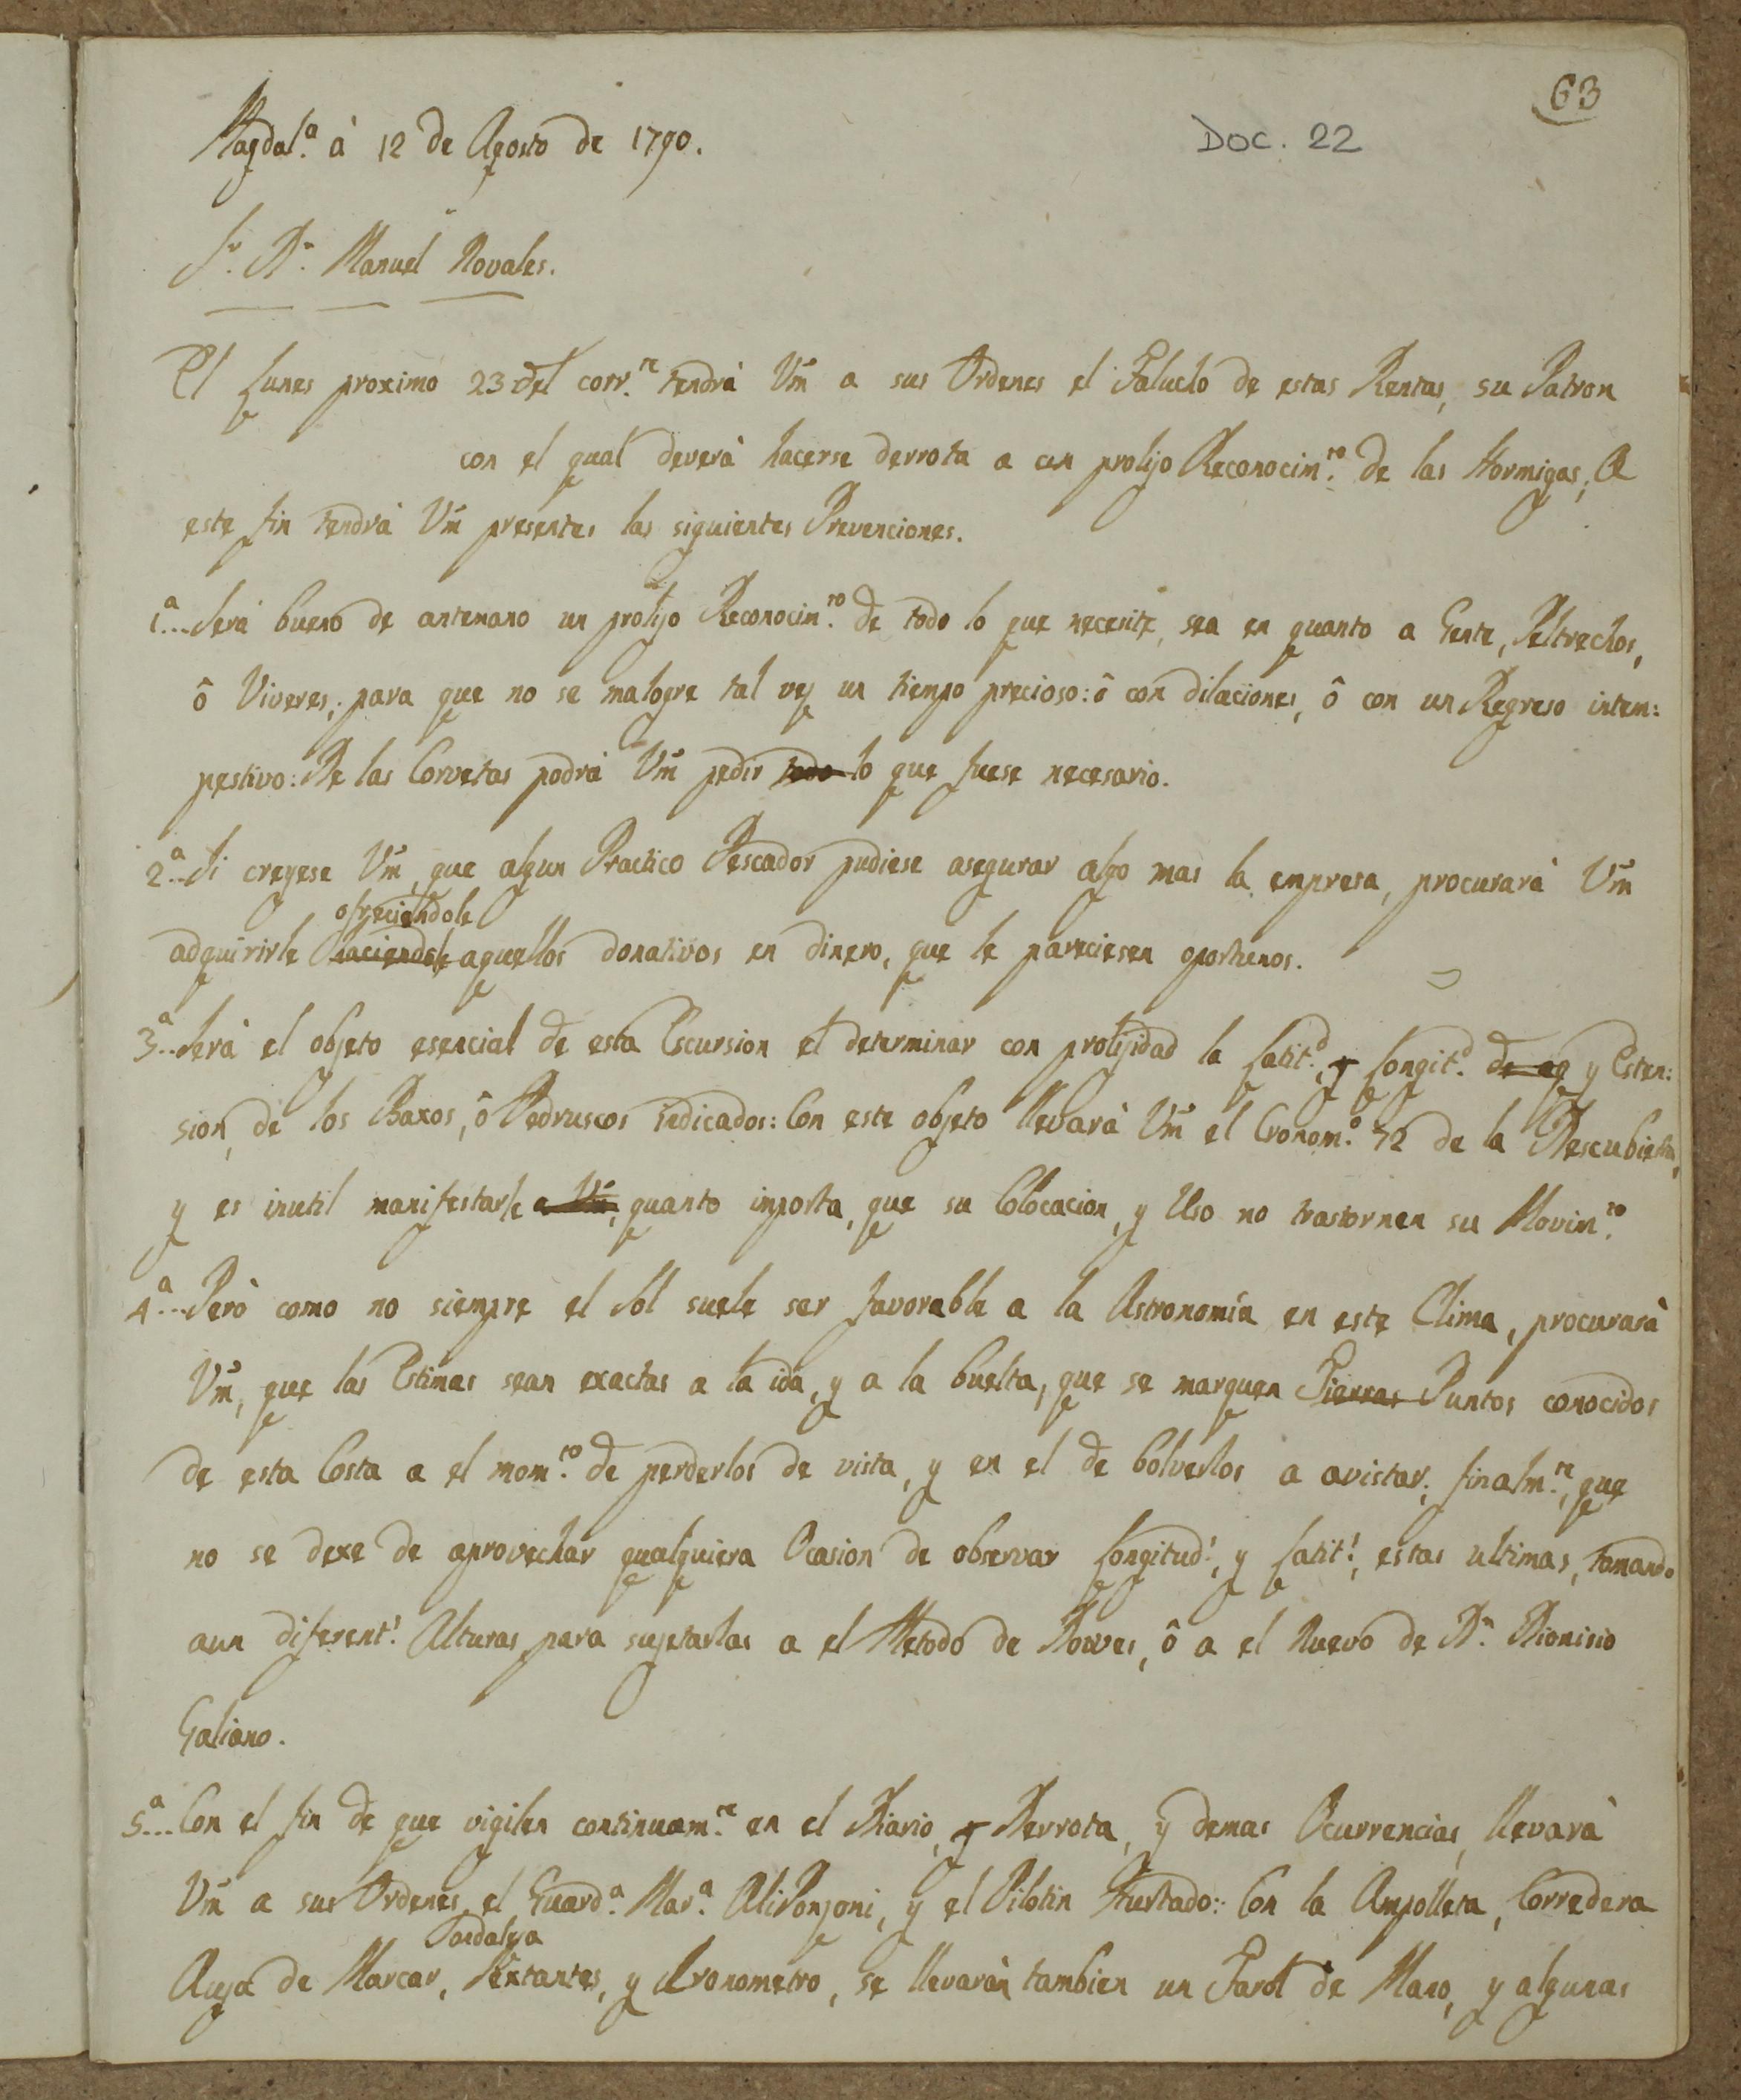 63
DOC. 22
Magdal.ª à 12 de Agosto de 1790.
S.r D.n Manuel Novales.
El Lunes proximo 23 del corr.te tendrà Vm a sus Ordenes el Falucho de estas Rentas, su Patron
con el qual deverà hacerse derrota a un prolijo Reconocim.to de las Hormigas; A
este fin tendrà Vm presentes las siguientes Prevenciones.
1.ª... Serà bueno de antemano un prolijo Reconocim.to de todo lo que necesite, sea en quanto a Gente, Peltrechos,
ô Viveres; para que no se malogre tal vez un tiempo precioso: ô con dilaciones, ô con un Regreso intem:
pestivo: De las Corvetas podrà Vm pedir todo lo que fuese necesario.
2.ª... Si creyese Vm, que algun Practico Pescador pudiese asegurar algo mas la empresa, procurarà Vm
ofreciendole
adquirirle haciendole aquellos donativos en dinero, que le pareciesen oportunos.
3.ª... Serà el objeto esencial de esta Escursion el determinar con prolijidad la Latit.d, y Longit.d de ag y Esten:
sion, de los Baxos, ô Pedruscos indicados: Con este objeto llevarà Vm el Cronom.o 72 de la Descubierta,
y es inutil manifestarle a Vm, quanto importa, que su Colocacion, y Uso no trastornen su Movim.to
4.ª... Però como no siempre el Sol suele ser favorable a la Astronomía en este Clima, procurarà
Vm, que las Estimas sean exactas a la ida, y a la buelta, que se marquen Tierras Puntos conocidos
de esta Costa a el mom.to de perderlos de vista, y en el de bolverlos a avistar; finalm.te, que
no se dexe de aprovechar qualquiera Ocasion de observar Longitud.s, y Latit.s, estas ultimas, tomando
aun diferent.s Alturas para sujetarlas a el Metodo de Dowes, ô a el Nuevo de D.n Dionisio
Galiano.
5.ª... Con el fin de que vigilen continuam.te en el Diario, y Derrota, y demas Ocurrencias, llevarà
Vm a sus Ordenes el Guard.ª Mar.ª Ali Ponzoni, y el Pilotin Hurtado: Con la Ampolleta, Corredera
Sondalesa
Auja de Marcar, Sextantes, y Cronometro, se llevaràn tambien un Farol de Mano, y algunas